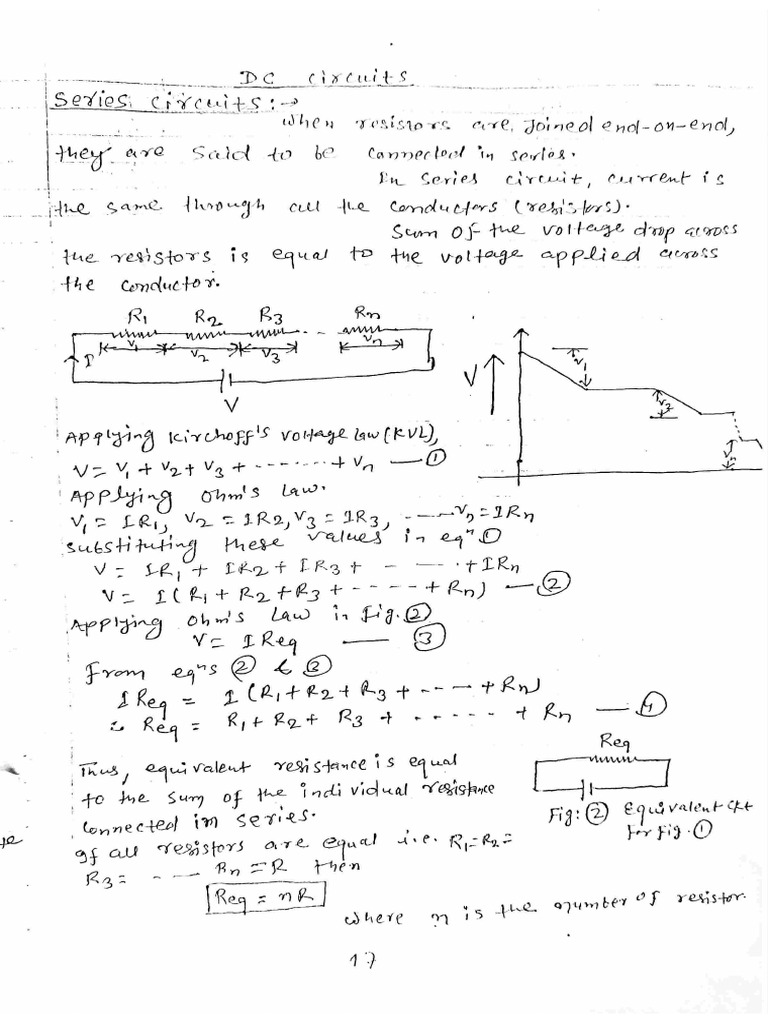 DC circuits
Series circuits :→
When resistors are joined end-on-end,
they are said to be connected in series.
In series circuit, current is
the same through all the conductors (resistors).
Sum of the voltage drop across
the resistors is equal to the voltage applied across
the conductor.
R1 R2 R3 Rn
V1 V2 V3 Vn
I
V
V
V1
V3
Vn
Applying Kirchoff's voltage law (KVL),
V = V1 + V2 + V3 + ------- + Vn — ①
Applying ohm's law.
V1 = IR1, V2 = IR2, V3 = IR3, ----- Vn = IRn
Substituting these values in eqn ①
V = IR1 + IR2 + IR3 + - ---- . + IRn
V = I (R1 + R2 + R3 + ----- + Rn) — ②
Applying ohm's law in Fig. ②
V = I Req — ③
From eqns ② & ③
I Req = I (R1 + R2 + R3 + ---- + Rn)
∴ Req = R1 + R2 + R3 + ------ + Rn — ④
Req
Thus, equivalent resistance is equal
to the sum of the individual resistance
connected in series.
Fig: ② Equivalent ckt
for Fig. ①
If all resistors are equal i.e. R1 = R2 =
R3 = - ---- Rn = R then
Req = nR
where n is the number of resistor.
17